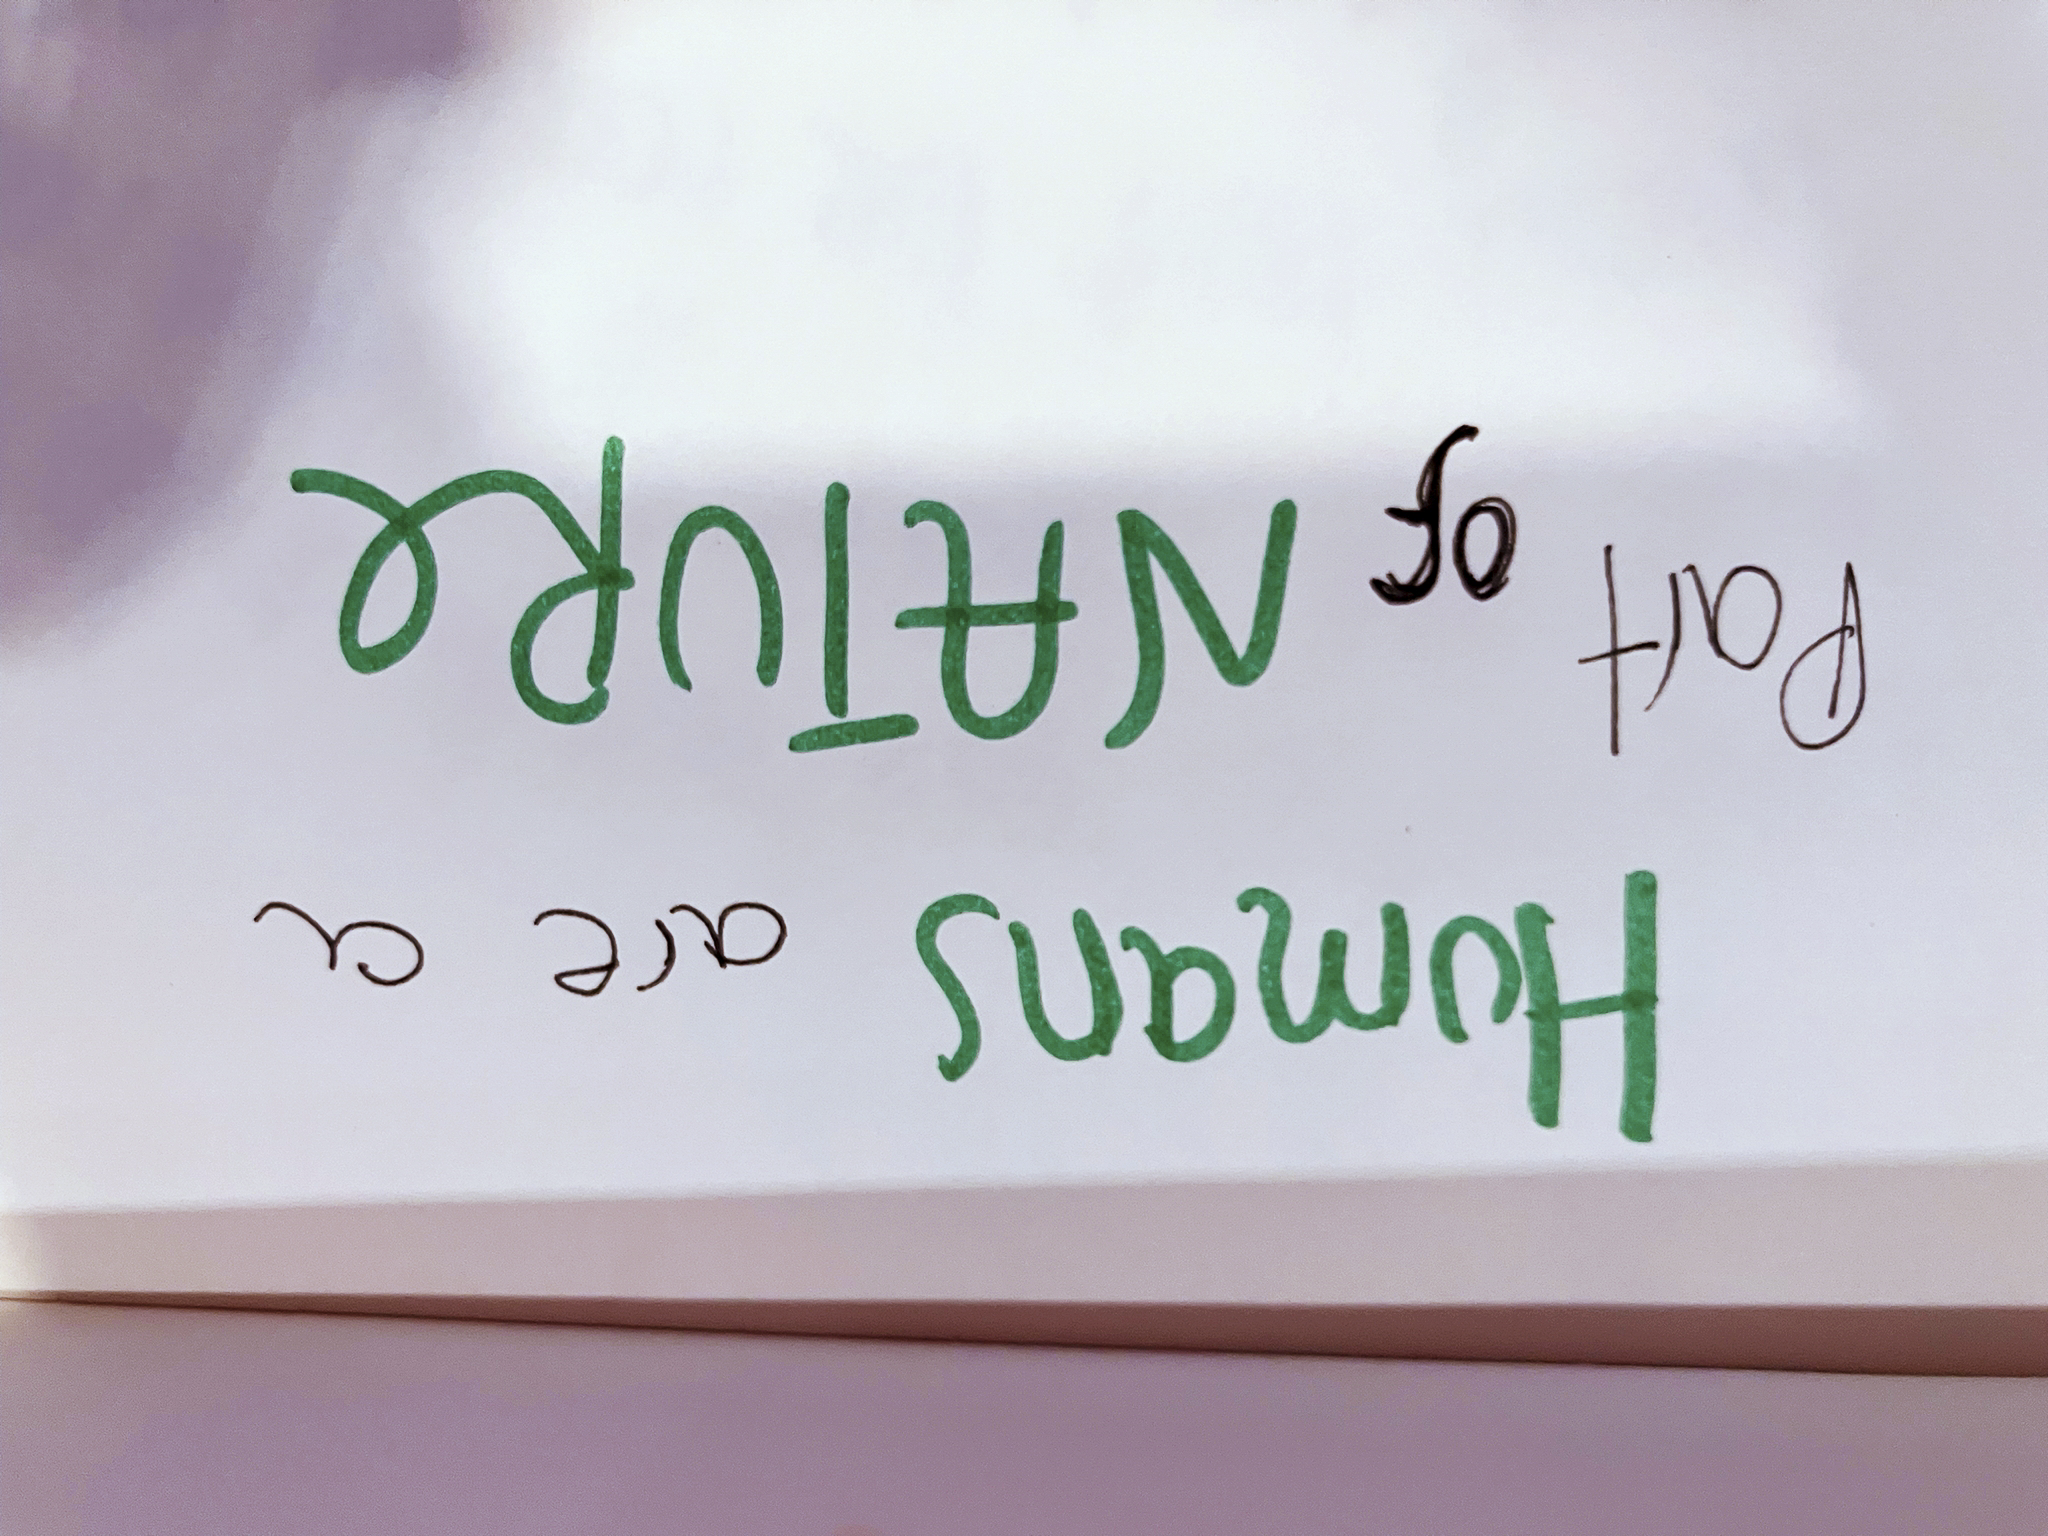 Humans are a
Part of NATURe